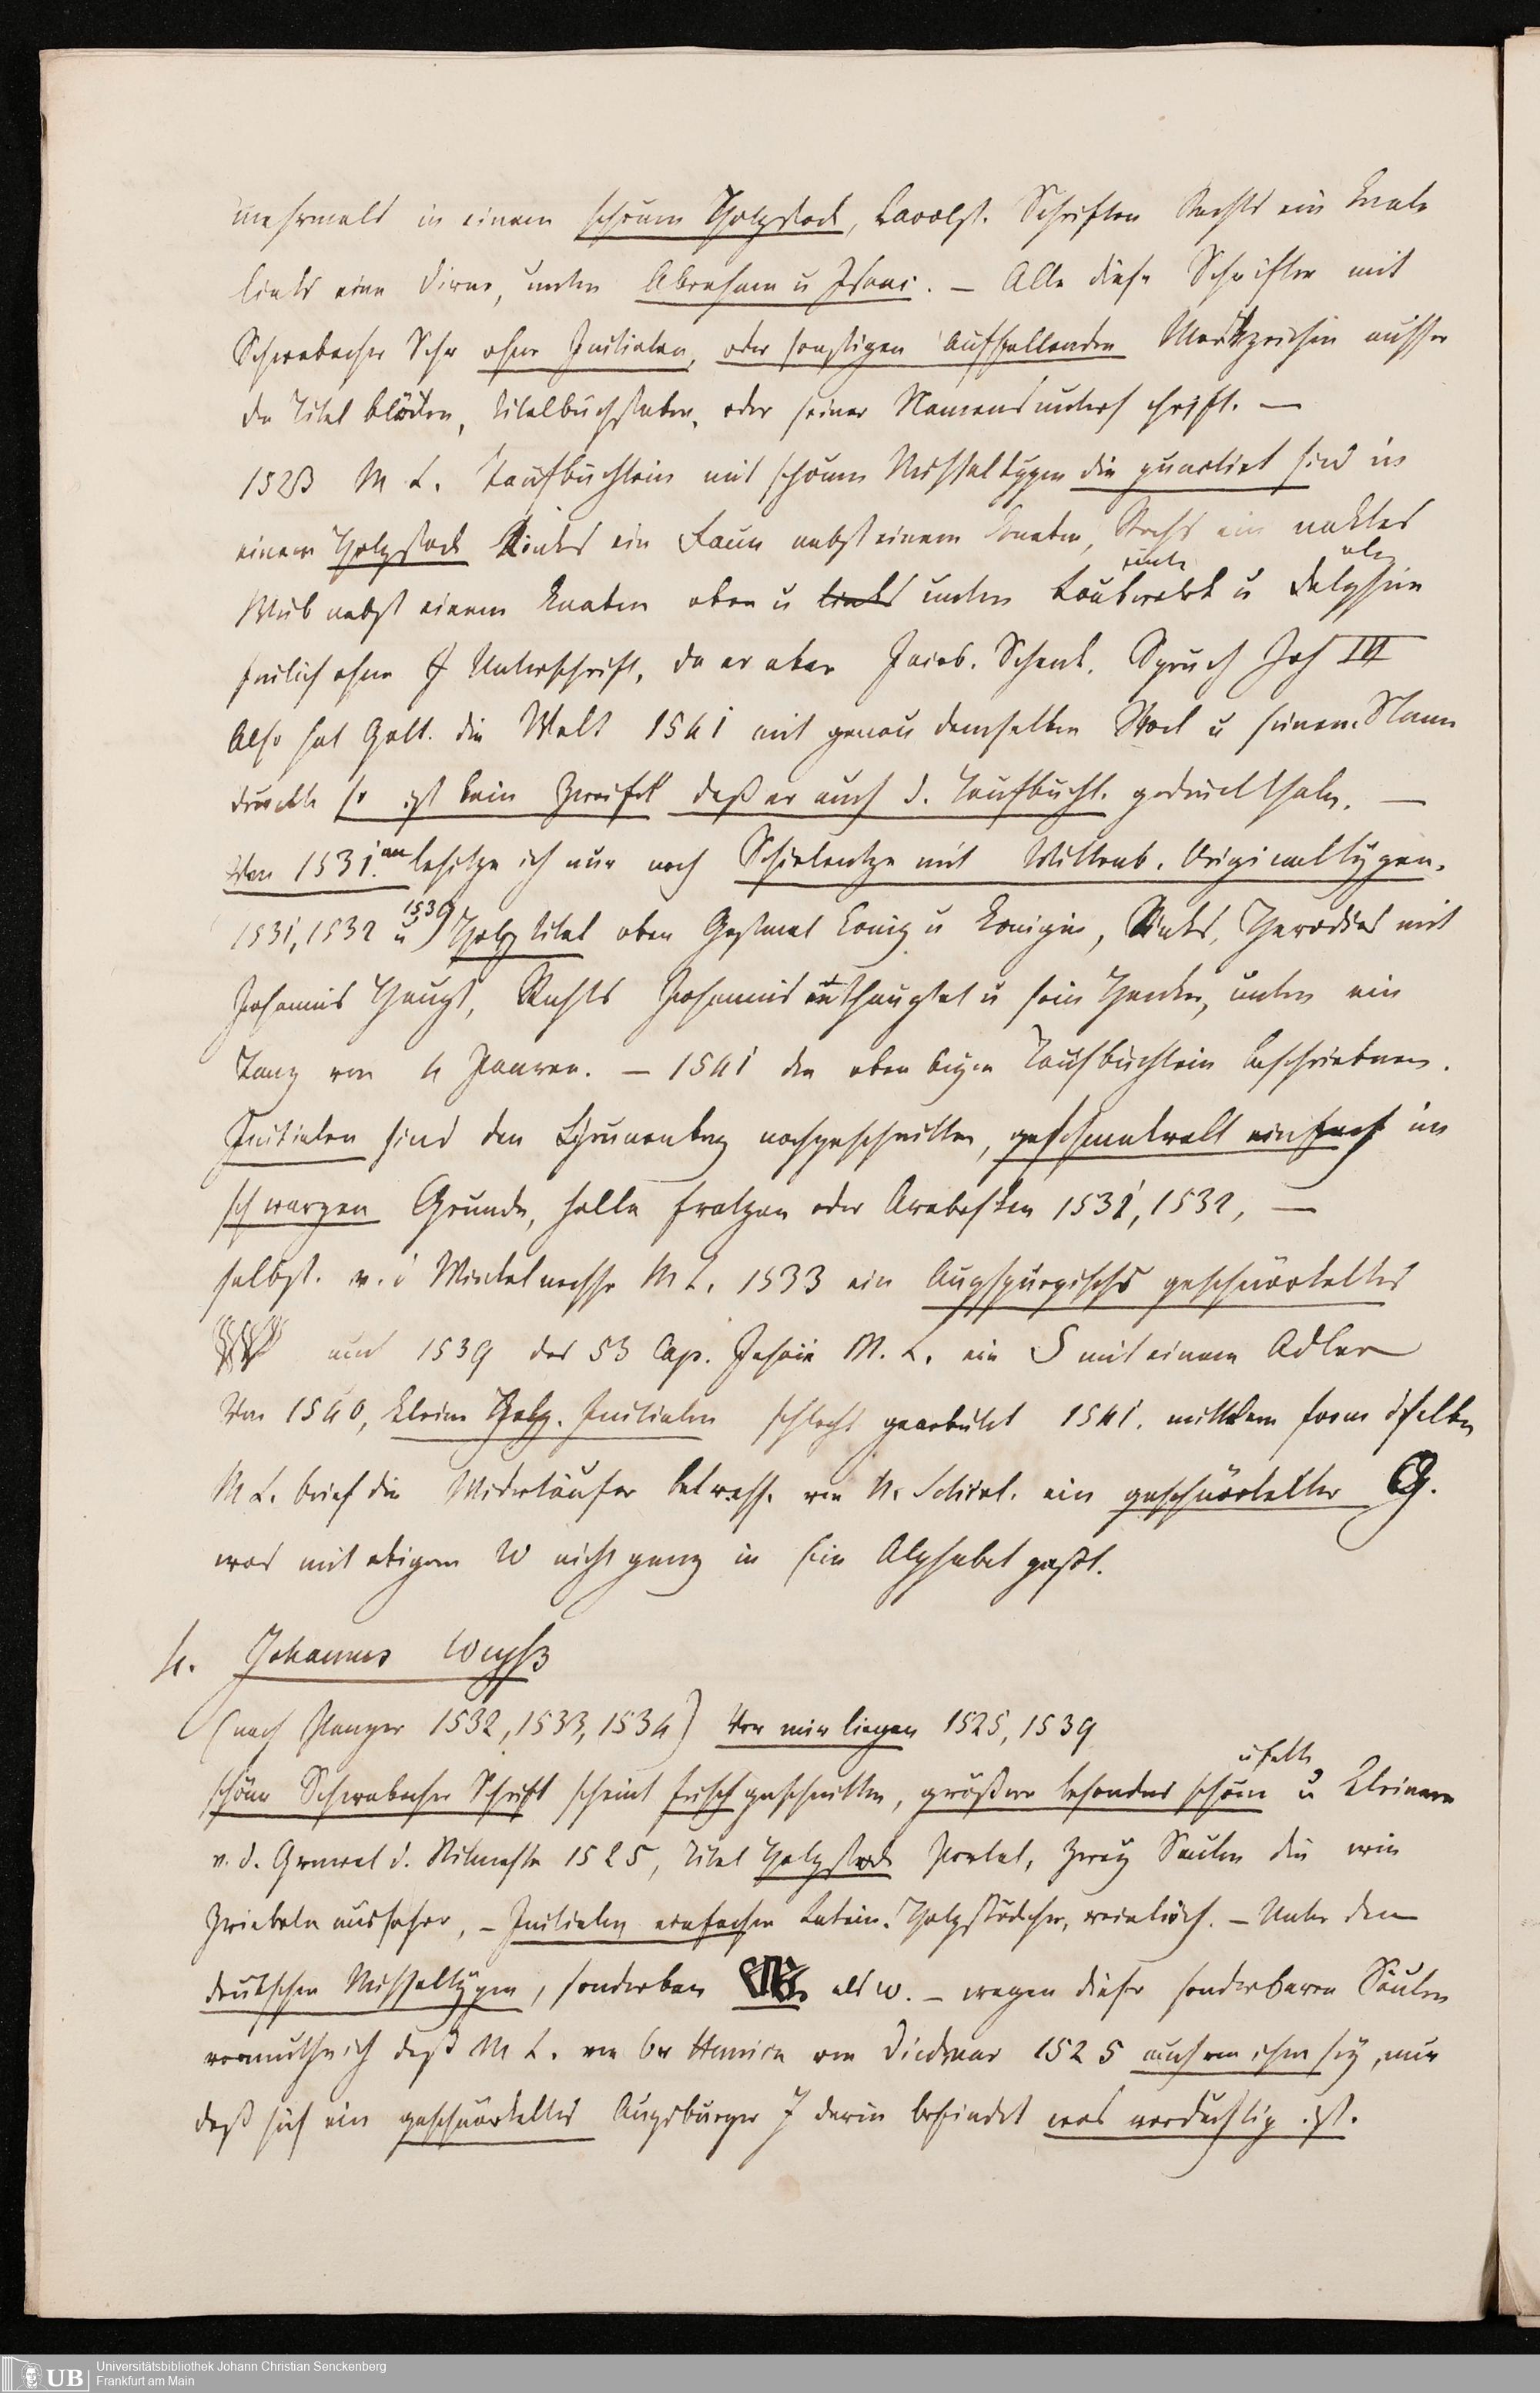 mehrmals in einem schönen Holzstock, Carolst. Schriften Rechts ein Knabe
links eine Dirne, unten Abraham u Isaac. — Alle diese Schriften mit
Schwabacher Schr ohne Initialen, oder sonstigen auffallenden Merkzeichen ausser
den Titel blöken, Titelbuchstaben, oder seiner Namensunterschrift. —
1523 M L. Taufbüchlein mit schönen Missaltypen die punctirt sind in
einem Holzstock Links ein Faun nebst einem Knaben, Rechts ein naktes
unten oben
Weib nebst einem Knaben oben u links unten Laubwerk u Delphine
freilich ohne Unterschrift, da er aber Jacob. Schenk. Spruch Joh III
Also hat Gott. die Welt 1541 mit genau demselben Stock u seinem Namen
druckte so ist kein Zweifel daß er auch d. Taufbüchl. gedruckt habe. —
Von 1531 an besitze ich nur noch Schirlentze mit Wittenb. Originaltypen.
1539
1531, 1532 u Holztitel oben Gastmal König u Königin, Links, Herodias mit
Johannis Haupt, Rechts Johannis enthauptet u sein Henker, unten ein
Tanz von 4 Paaren. — 1541 den oben bejm Taufbüchlein beschriebnen.
Initialen sind den Grunenberg nachgeschnitten, geschmakvoll einfach im
schwarzen Grunde, helle Fratzen oder Arabesken 1531, 1532, —
selbst. v. d Winkelmesse M L. 1533 ein Augspurgisches geschnörkeltes
W und 1539 das 53 Cap. Jesaie M. L. ein S mit einem Adler
Von 1540, kleine Holz. Initialen schlecht gearbeitet 1541. mittlern form dselben
M L. brief die Widertäufer betreff. von N. Schirl. ein geschnörkelter G.
was mit obigem W nicht ganz in Ein Alphabet paßt.
4. Johannes Weyß
(nach Panzer 1532, 1533, 1534) Vor mir liegen 1525, 1539
u fette
schöne Schwabacher Schrift scheint frisch geschnitten, größere besonders schön u kleinere
v. d. Grewel d. Stilmesse 1525, Titel Holzstock Portal, zwey Säulen die wie
Zwiebeln aussehen, – Initialen einfachen Latein. Holzstöckchen, weinlich. – Unter den
deutschen Missaltypen, sonderbar W als w. – wegen dieser sonderbaren Säulen
vermuthe ich daß M L. von Br Henrico von Diedmar 1525 auch von ihm sey, nur
daß sich ein geschnörkeltes Augsburger J darin befindet was verdächtig ist.
Universitätsbibliothek Johann Christian Senckenberg
Frankfurt am Main
UB